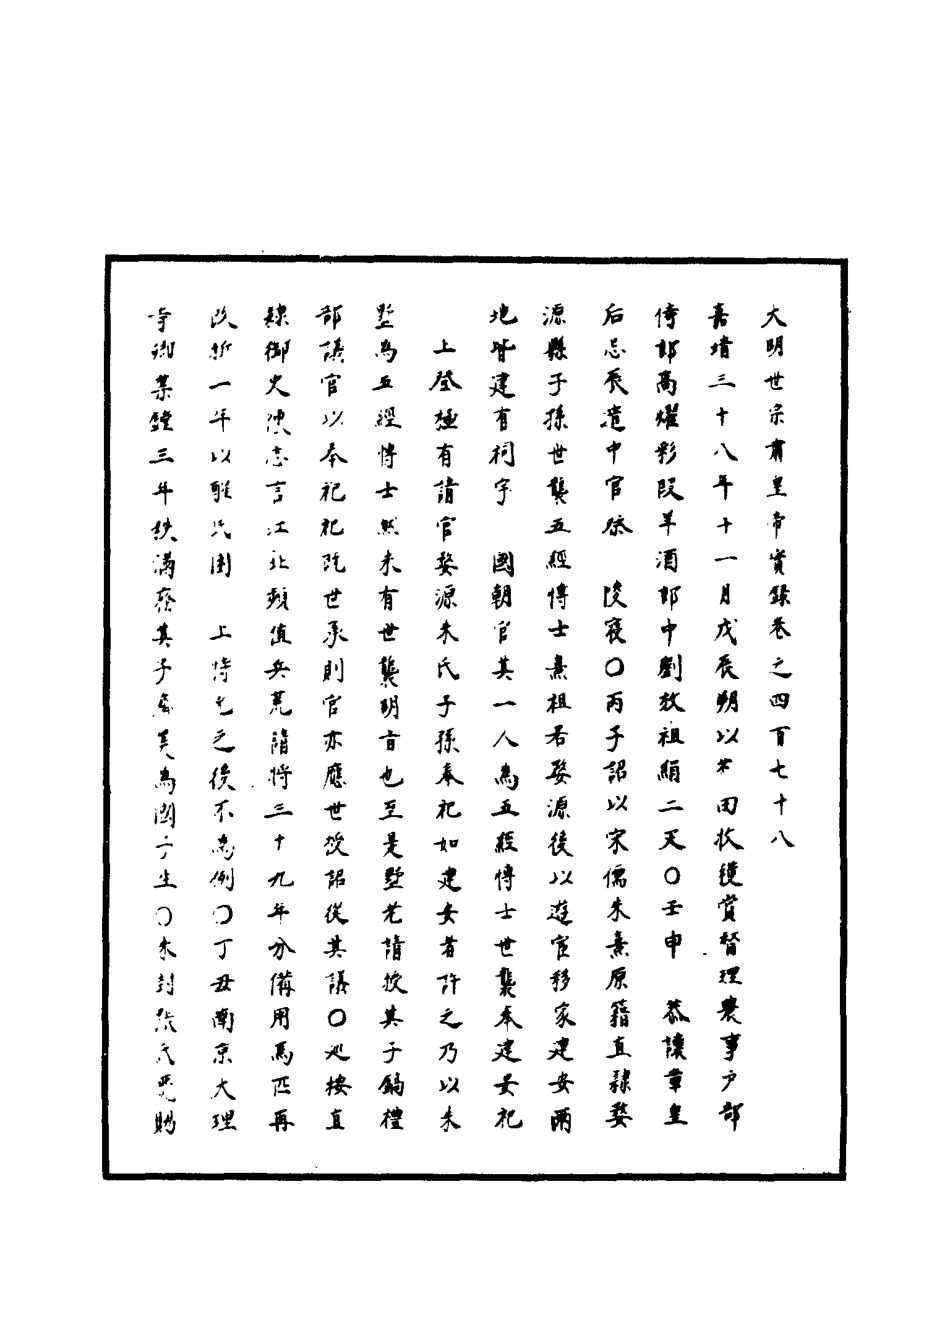 大明世宗肅皇帝實錄卷之四百七十八
嘉靖三十八年十一月戊辰朔以耤田收穫賞督理農事戶部
侍郎高燿彩段羊酒郎中劉放祖絹二疋〇壬申　恭讓章皇
后忌辰遣中官祭　陵寢〇丙子詔以宋儒朱熹原籍直隸婺
源縣子孫世襲五經博士熹祖若婺源後以遊宦移家建安兩
地皆建有祠宇　國朝官其一人為五經博士世襲奉建安祀
上登極有請官婺源朱氏子孫奉祀如建安者許之乃以朱
墅為五經博士然未有世襲明旨也至是墅老請授其子鎬禮
部議官以奉祀祀既世承則官亦應世授詔從其議〇巡按直
隸御史陳志言江北頻值兵荒請將三十九年分備用馬匹再
改折一年以甦民困　上特允之後不為例〇丁丑南京大理
寺卿葉鏜三年秩滿廕其子為國子生〇未封張氏薨賜